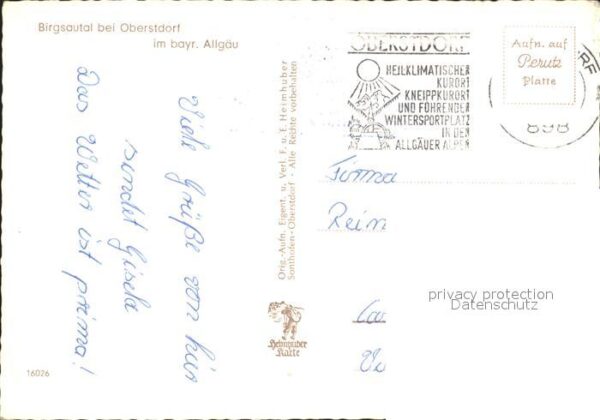 Birgsautal bei Oberstdorf
im bayr. Allgäu
Viele Grüße von hier
sendet Gisela
Das Wetter ist prima!
16026
Orig.-Aufn. Eigent. u. Verl. F. u. E. Heimhuber
Sonthofen-Oberstdorf · Alle Rechte vorbehalten
Heimhuber
Karte
OBERSTDORF
HEILKLIMATISCHER
KURORT
KNEIPPKURORT
UND FÜHRENDER
WINTERSPORTPLATZ
IN DEN
ALLGÄUER ALPEN
Aufn. auf
Perutz
Platte
898
Firma
Rein
privacy protection
Datenschutz